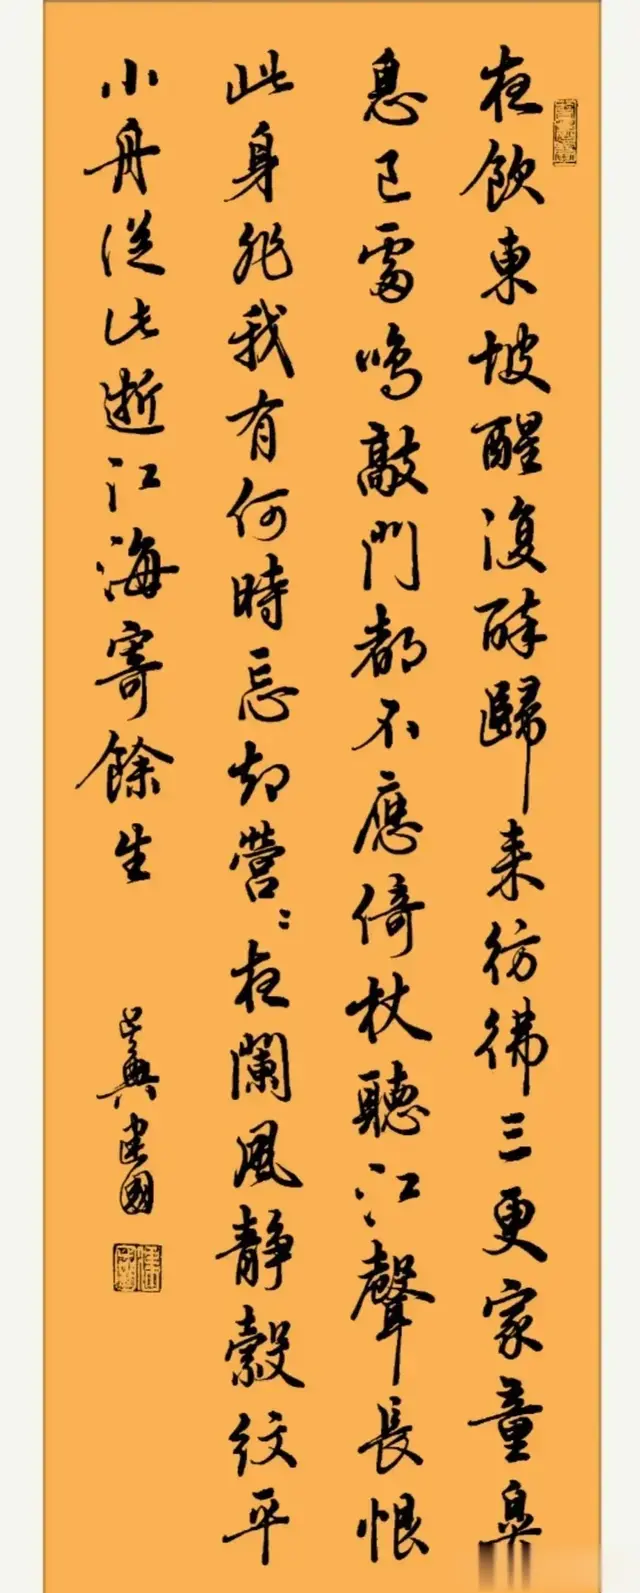 夜飲東坡醒復醉歸来彷彿三更家童鼻
息已雷鳴敲門都不應倚杖聽江聲長恨
此身非我有何時忘却營〻夜闌風靜縠紋平
小舟從此逝江海寄餘生
吴興建國